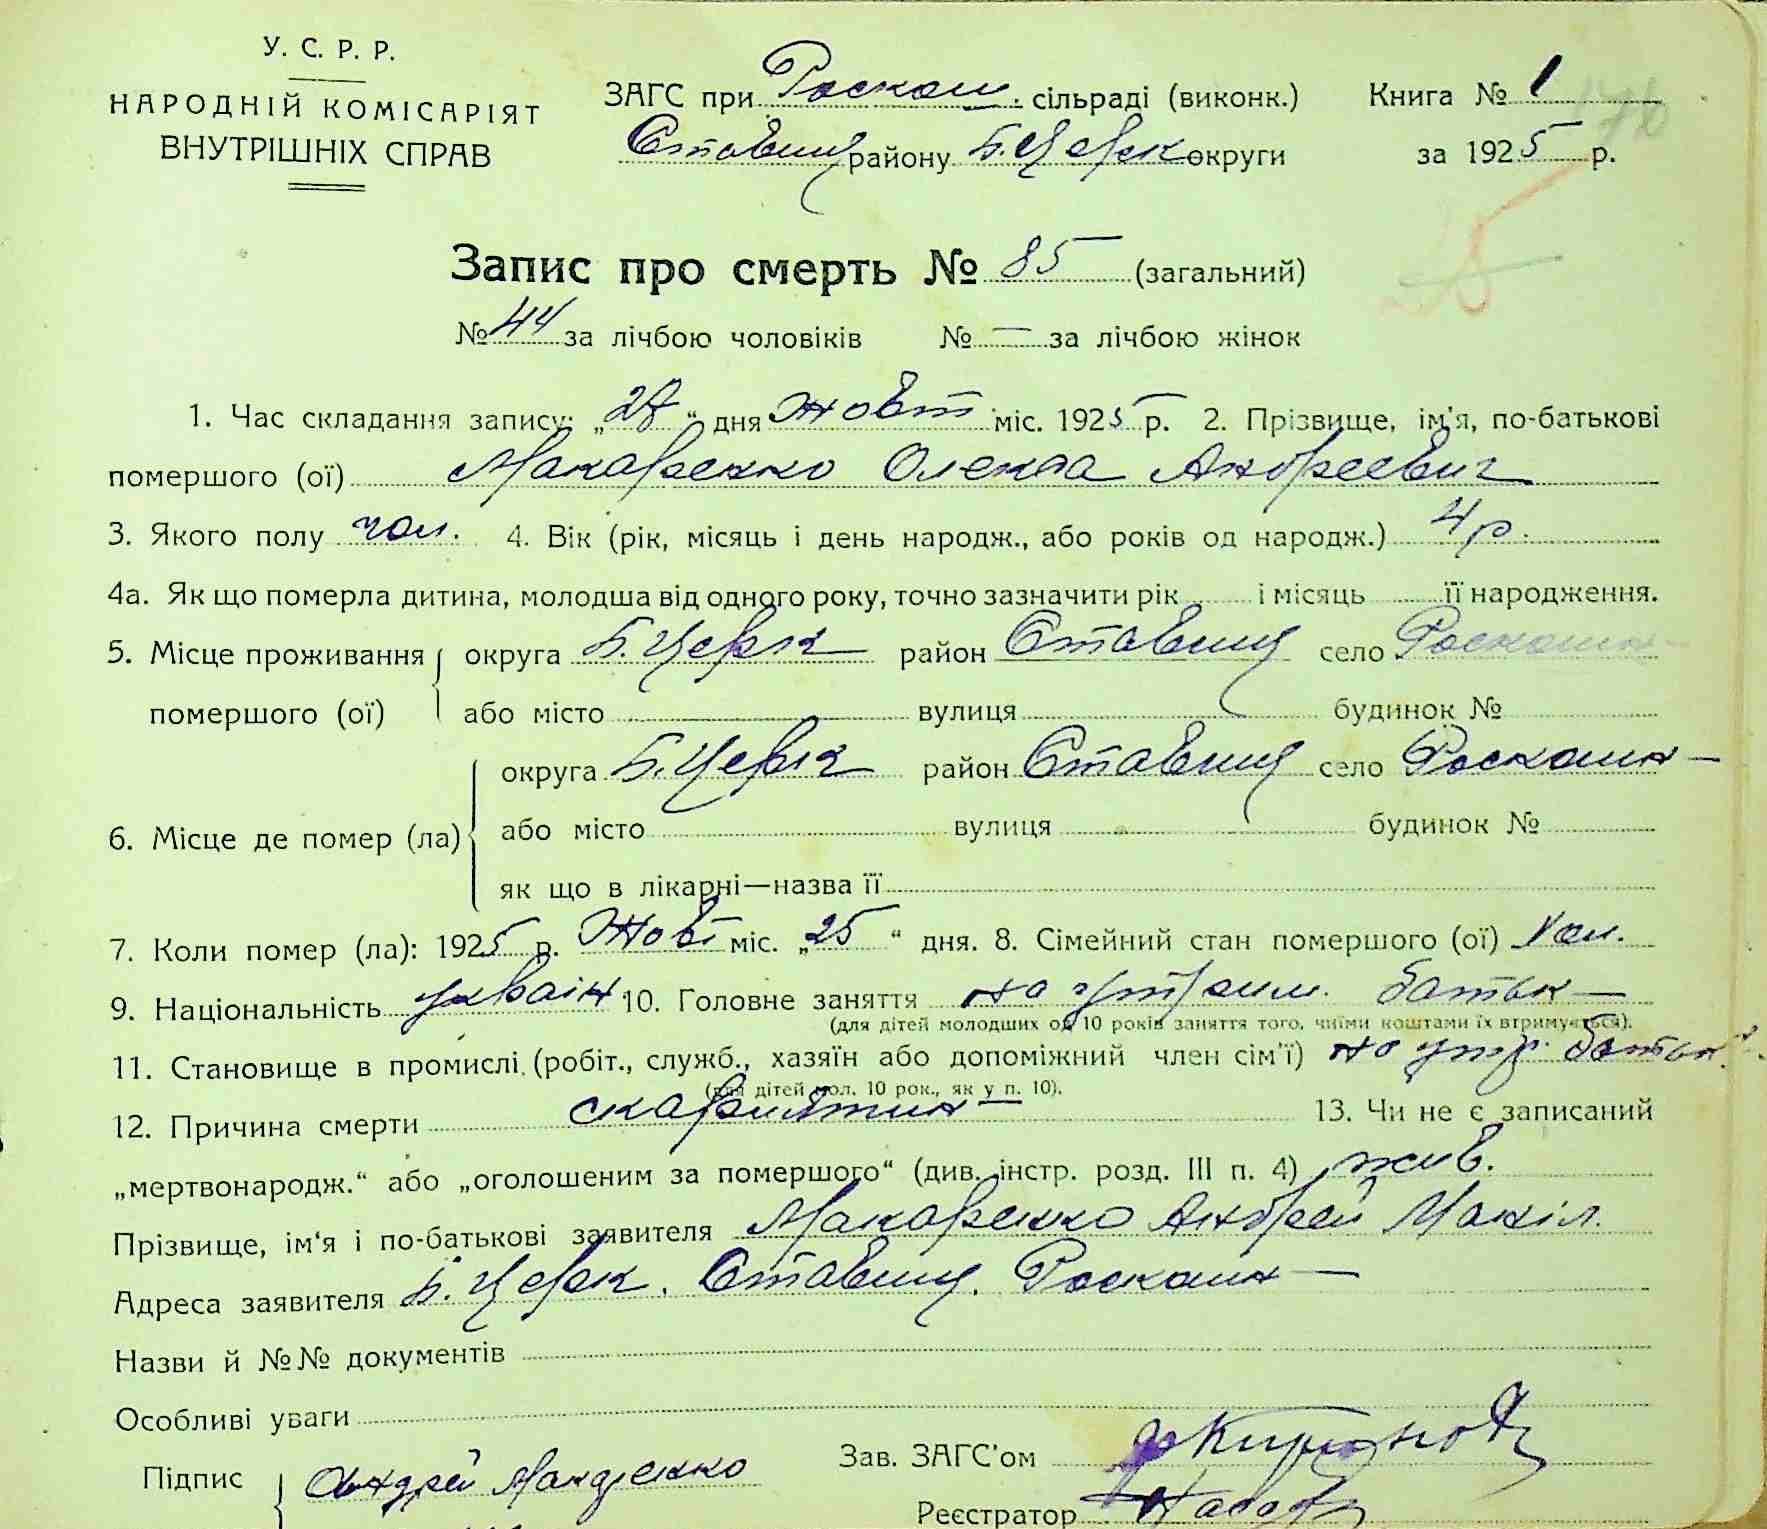 У. С. Р. Р.
НАРОДНІЙ КОМІСАРІЯТ
ВНУТРІШНІХ СПРАВ
ЗАГС при Роскош. сільраді (виконк.) Книга № 1
Ставищ району Б. Церк округи за 1925 р.
Запис про смерть № 85 (загальний)
№ 44 за лічбою чоловіків № — за лічбою жінок
1. Час складання запису: „28“ дня Жовт міс. 1925 р. 2. Прізвище, ім'я, по-батькові
помершого (ої) Макаренко Олекса Андреевич
3. Якого полу чол. 4. Вік (рік, місяць і день народж., або років од народж.) 4 р.
4а. Як що померла дитина, молодша від одного року, точно зазначити рік і місяць її народження.
5. Місце проживання округа Б. Церк район Ставищ село Роскошн
помершого (ої) або місто вулиця будинок №
округа Б. Церк район Ставищ село Роскошн—
6. Місце де помер (ла) або місто вулиця будинок №
як що в лікарні—назва її
7. Коли помер (ла): 1925 р. Жовт міс. „25“ дня. 8. Сімейний стан помершого (ої) Хол.
9. Національність україн 10. Головне заняття на утрим. батьк—
(для дітей молодших од 10 років заняття того, чиїми коштами їх втримується).
11. Становище в промислі (робіт., служб., хазяїн або допоміжний член сім'ї) на утр. батьк
(для дітей мол. 10 рок., як у п. 10).
12. Причина смерти скарлятин— 13. Чи не є записаний
„мертвонародж.“ або „оголошеним за помершого“ (див. інстр. розд. III п. 4) жив.
Прізвище, ім'я і по-батькові заявителя Макаренко Андрей
Адреса заявителя Б. Церк. Ставищ. Роскошн—
Назви й №№ документів
Особливі уваги
Зав. ЗАГС'ом
Підпис Андрей Макаренко
Реєстратор